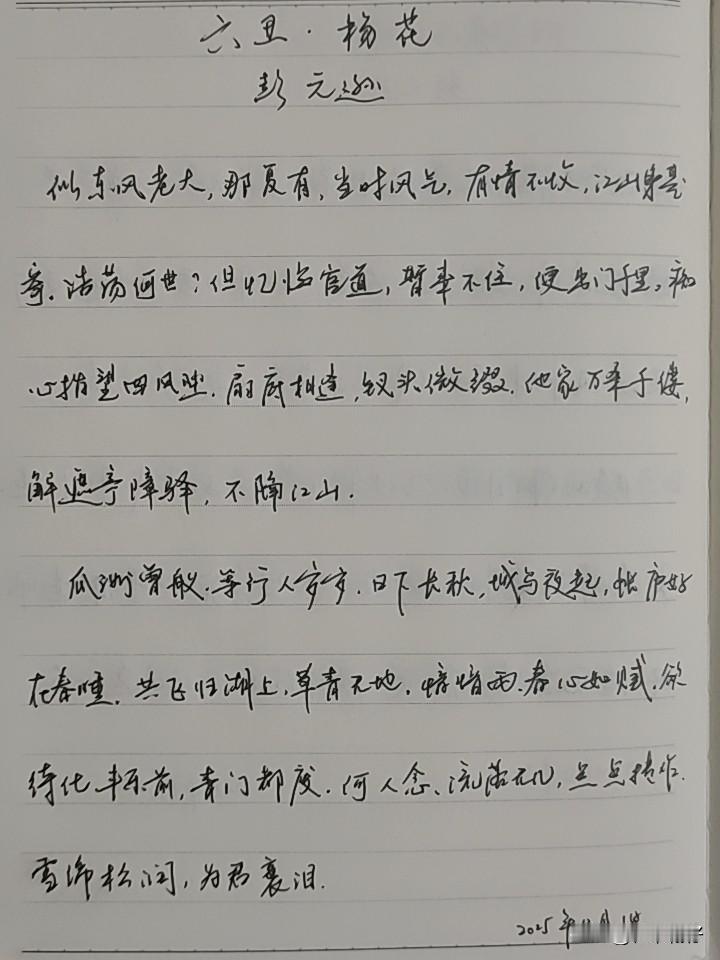 六丑·杨花
彭元逊
似东风老大,那复有,当时风气,有情不收,江山身是
寄.浩荡何世?但忆临官道,暂来不住,便出门千里。痴
心指望回风坠.扇底相逢,钗头微缀.他家万条千缕,
解遮亭障驿,不隔江山.
瓜洲曾舣.等行人岁岁.日下长秋,城乌夜起,帐庐好
在春睡.共飞归湖上,草青无地.愔愔雨.春心如腻.欲
待化丰乐前,青门都废.何人念、流落无几,点点抟作
雪绵松润,为君裛泪.
2025年11月1